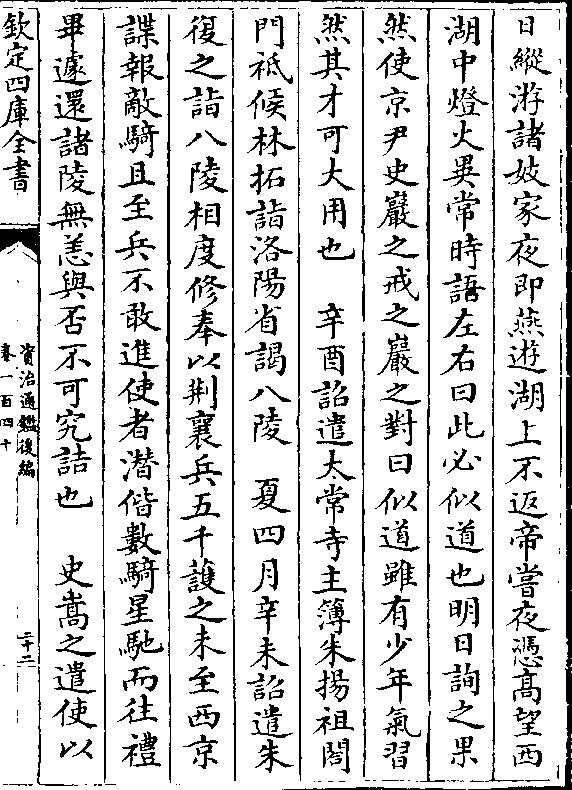 日縱游諸妓家夜即燕遊湖上不返帝嘗夜憑髙望西
湖中燈火異常時語左右曰此必似道也明日詢之果
然使京尹史巖之戒之巖之對曰似道雖有少年氣習
然其才可大用也　辛酉詔遣太常寺主簿朱揚祖閤
門祗候林拓詣洛陽省謁八陵　夏四月辛未詔遣朱
復之詣八陵相度修奉以荆襄兵五千護之未至西京
諜報敵騎且至兵不敢進使者潛偕數騎星馳而往禮
畢遽還諸陵無恙與否不可究詰也　史嵩之遣使以
欽定四庫全書
資治通鑑後編
卷一百四十
三十二